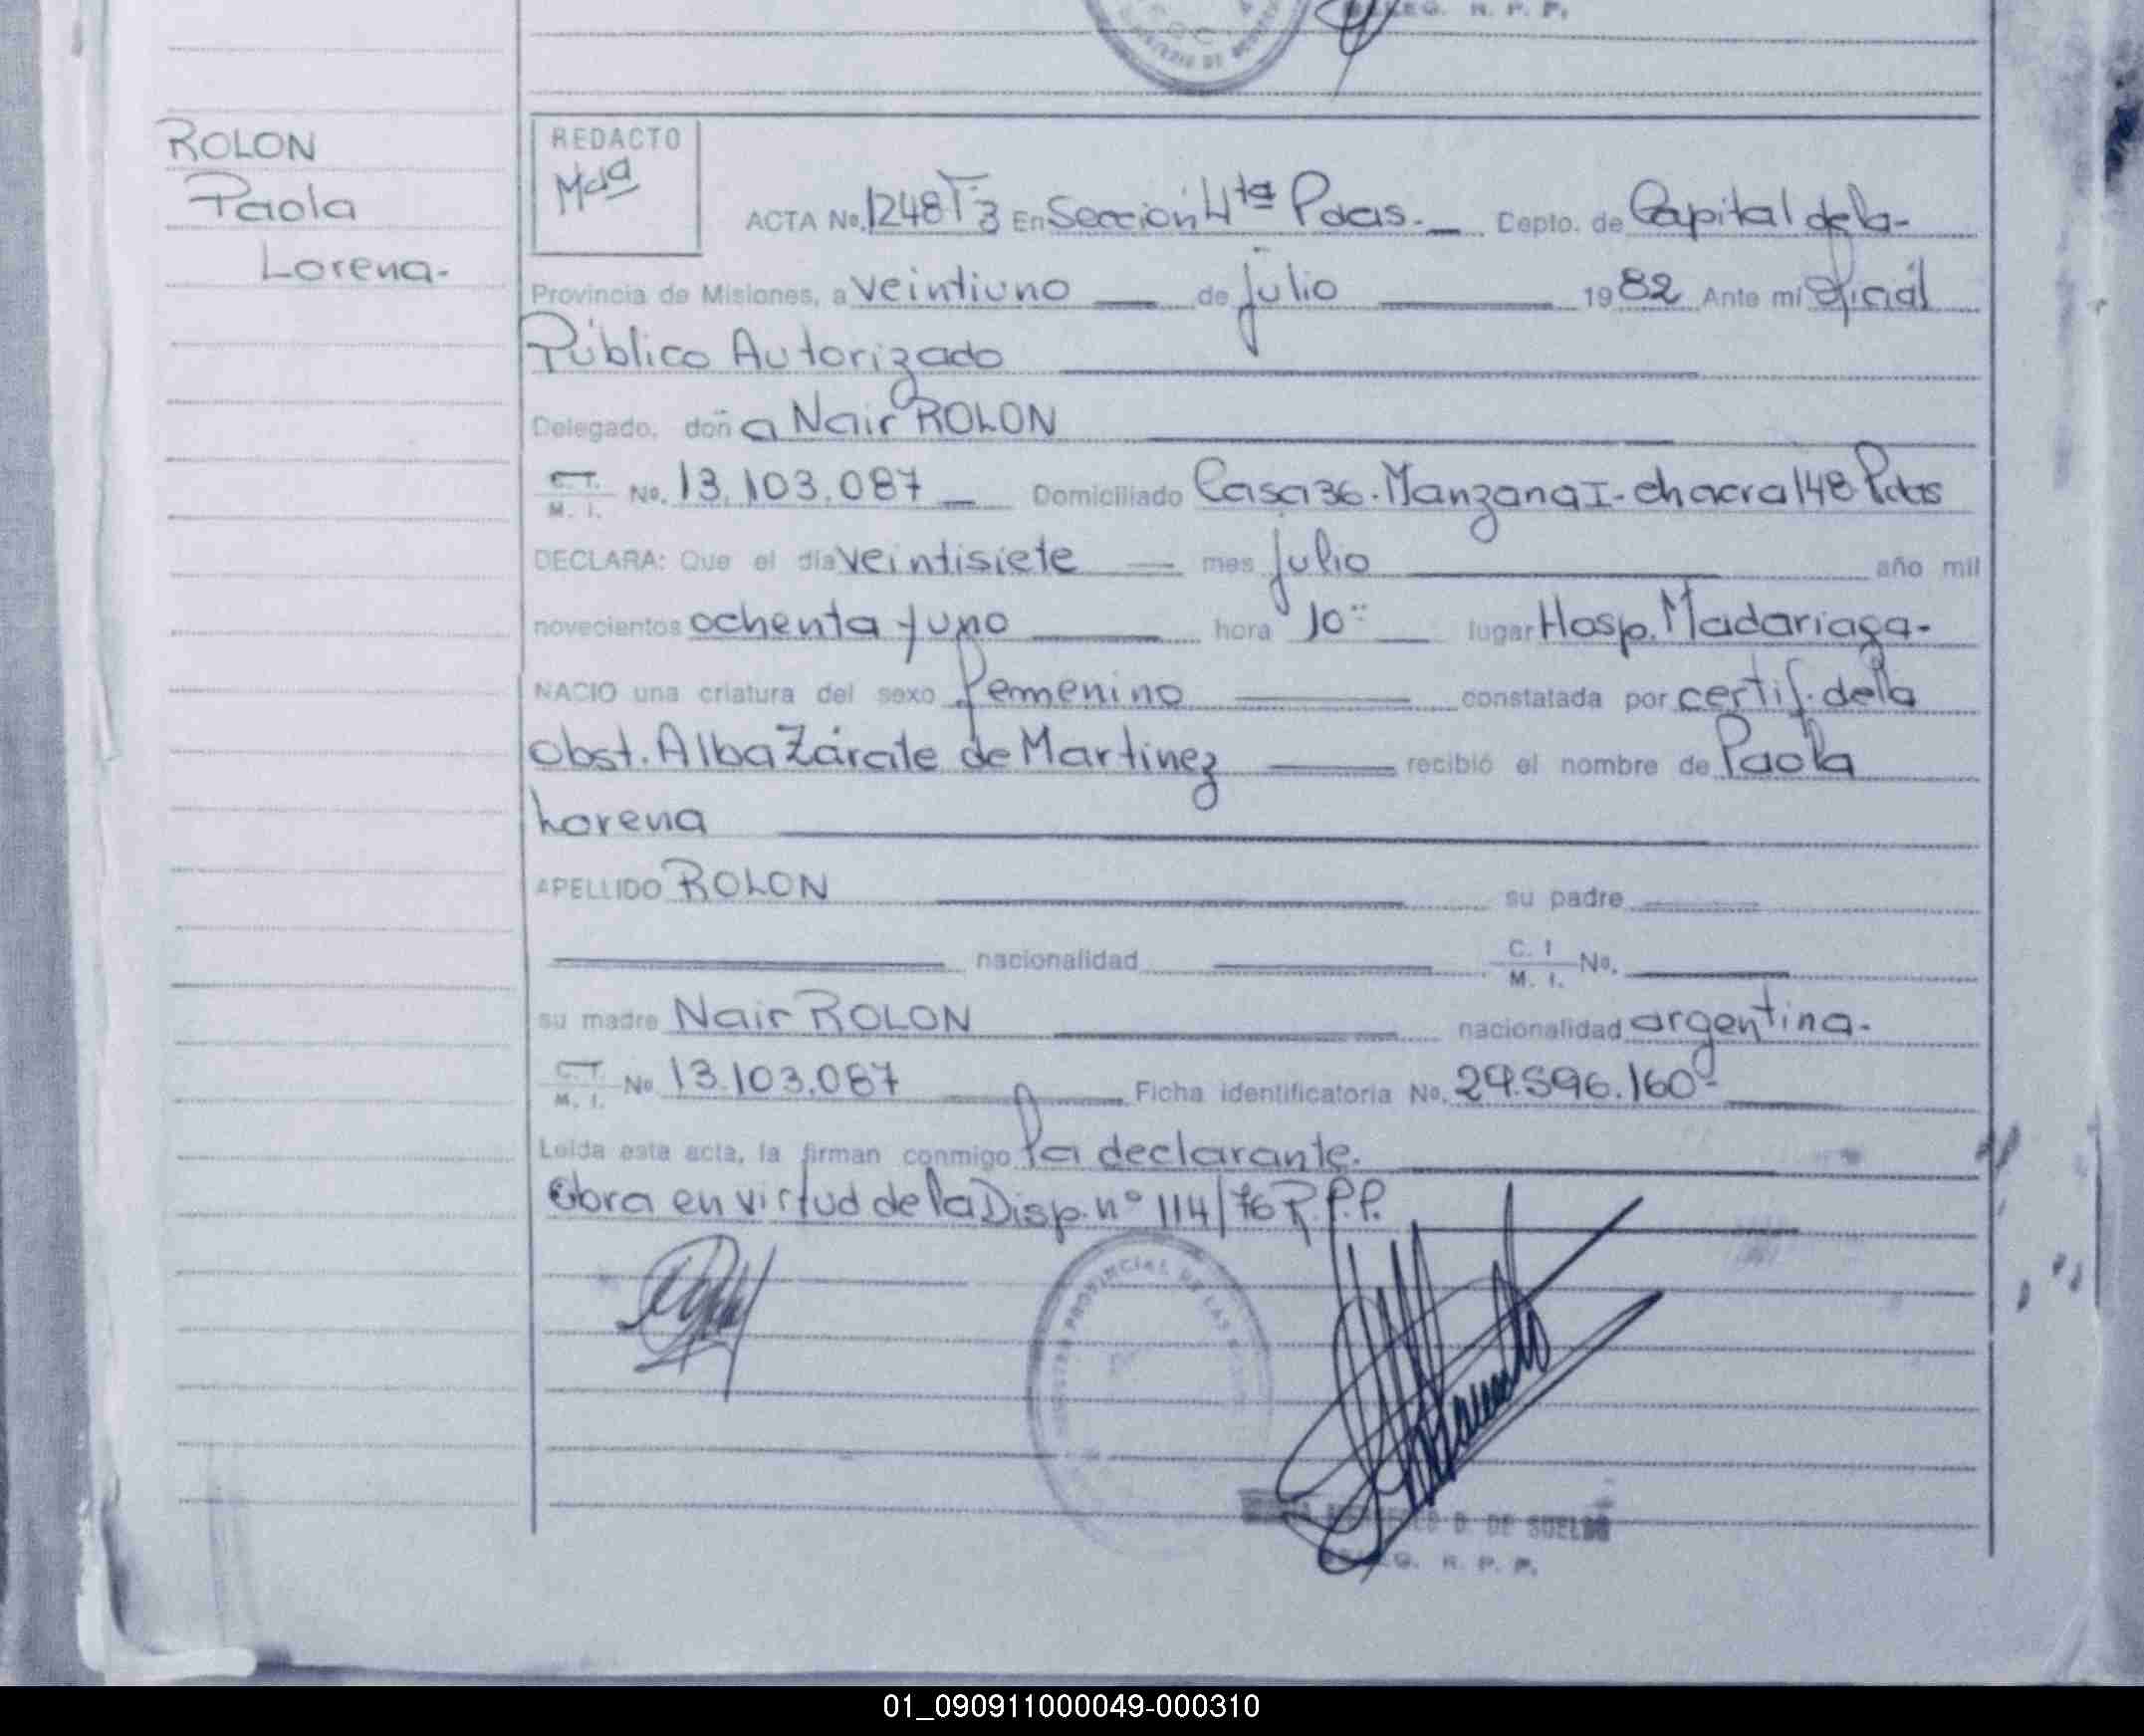 G. R. P. P.
ROLON
Paola
Lorena.
REDACTO
ACTA No. 1248 T-3 En Sección 4ta Pdas. Depto. de Capital de la
Provincia de Misiones, a veintiuno de julio 1982 Ante mí Oficial
Público Autorizado
Delegado, doña Nair ROLON
C.I. M. I. No. 13.103.087 Domiciliado Casa 36. Manzana I - chacra 148 Pdas
DECLARA: Que el día veintisiete mes julio año mil
novecientos ochenta y uno hora 10 lugar Hosp. Madariaga -
NACIO una criatura del sexo femenino constatada por certif. de la
obst. Alba Zárate de Martinez recibió el nombre de Paola
Lorena
APELLIDO ROLON su padre
nacionalidad C. I M. I. No.
su madre Nair ROLON nacionalidad argentina.
C.I. M. I. No 13.103.087 Ficha identificatoria No. 29.596.160-
Leída esta acta, la firman conmigo la declarante.
Obra en virtud de la Disp. n° 114/76 R.P.P.
PROVINCIAL DE LAS
D. DE SUELDO
G. R. P. P.
01_090911000049-000310